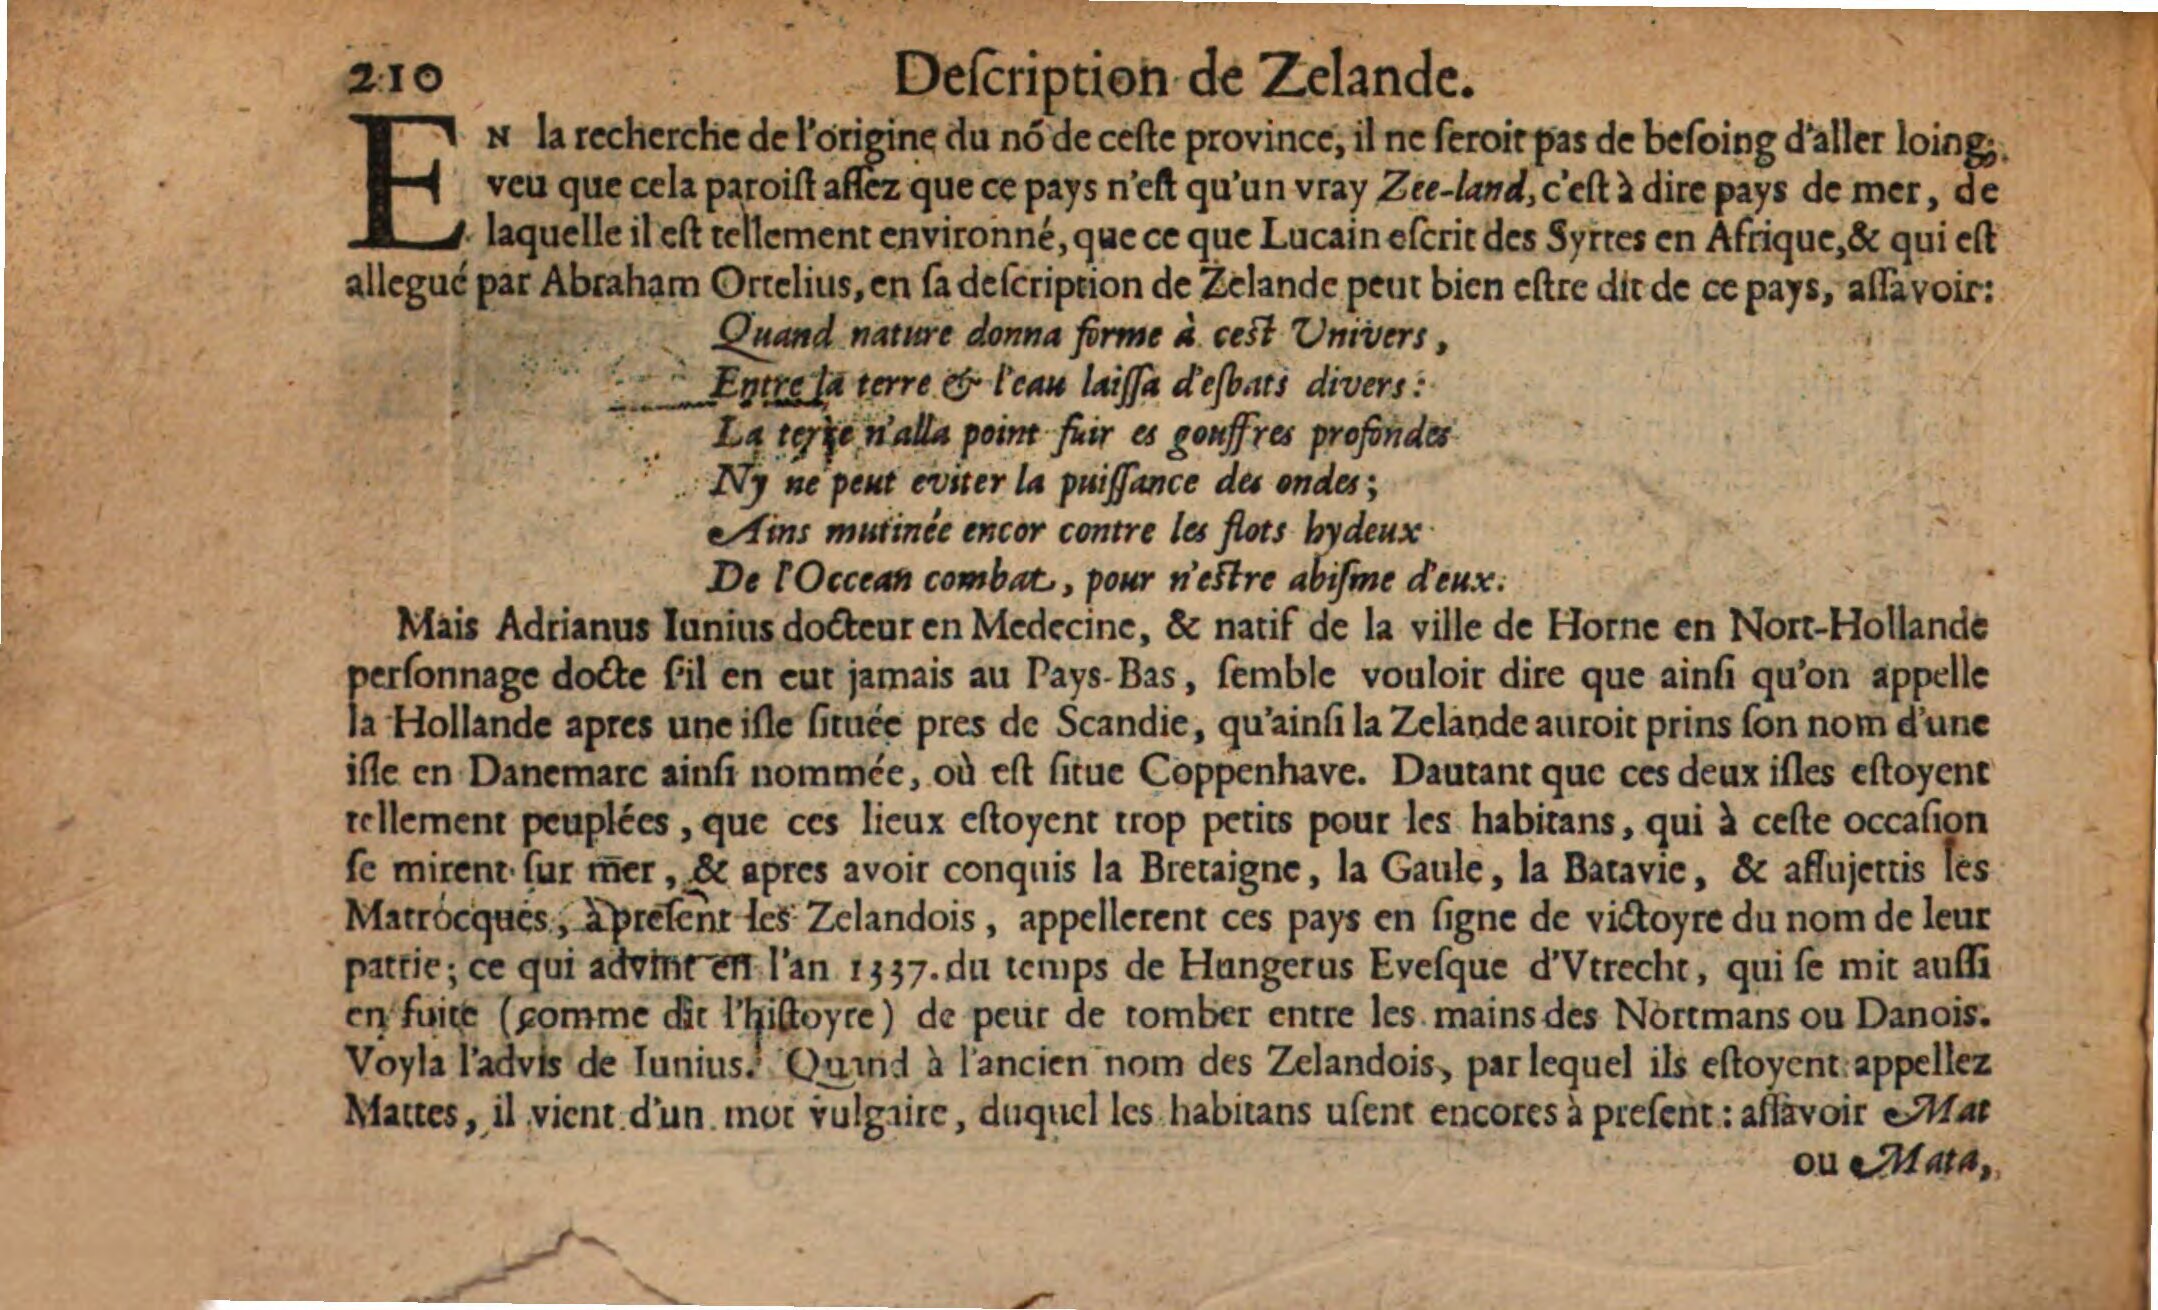 210 Deſcription de Zelande.
EN la recherche de l'origine du nõ de ceſte province, il ne ſeroit pas de beſoing d'aller loing;
veu que cela paroiſt aſſez que ce pays n'eſt qu'un vray Zee-land, c'eſt à dire pays de mer, de
laquelle il eſt tellement environné, que ce que Lucain eſcrit des Syrtes en Afrique, & qui eſt
allegué par Abraham Ortelius, en ſa deſcription de Zelande peut bien eſtre dit de ce pays, aſſavoir:
Quand nature donna forme à ceſt Univers,
Entre la terre & l'eau laiſſa d'eſbats divers:
La terre n'alla point fuir es gouffres profondes
Ny ne peut eviter la puiſſance des ondes;
Ains mutinée encor contre les flots hydeux
De l'Occean combat, pour n'eſtre abiſme d'eux.
Mais Adrianus Iunius docteur en Medecine, & natif de la ville de Horne en Nort-Hollande
perſonnage docte ſ'il en eut jamais au Pays-Bas, ſemble vouloir dire que ainſi qu'on appelle
la Hollande apres une iſle ſituée pres de Scandie, qu'ainſi la Zelande auroit prins ſon nom d'une
iſle en Danemarc ainſi nommée, où eſt ſitue Coppenhave. Dautant que ces deux iſles eſtoyent
tellement peuplées, que ces lieux eſtoyent trop petits pour les habitans, qui à ceſte occaſion
ſe mirent ſur mer, & apres avoir conquis la Bretaigne, la Gaule, la Batavie, & aſſujettis les
Matrocques, à preſent les Zelandois, appellerent ces pays en ſigne de victoyre du nom de leur
patrie; ce qui advint en l'an 1337. du temps de Hungerus Eveſque d'Vtrecht, qui ſe mit auſſi
en fuite (comme dit l'hiſtoyre) de peur de tomber entre les mains des Nortmans ou Danois.
Voyla l'advis de Iunius. Quand à l'ancien nom des Zelandois, par lequel ils eſtoyent appellez
Mattes, il vient d'un mot vulgaire, duquel les habitans uſent encores à preſent: aſſavoir Mat
ou Mata,